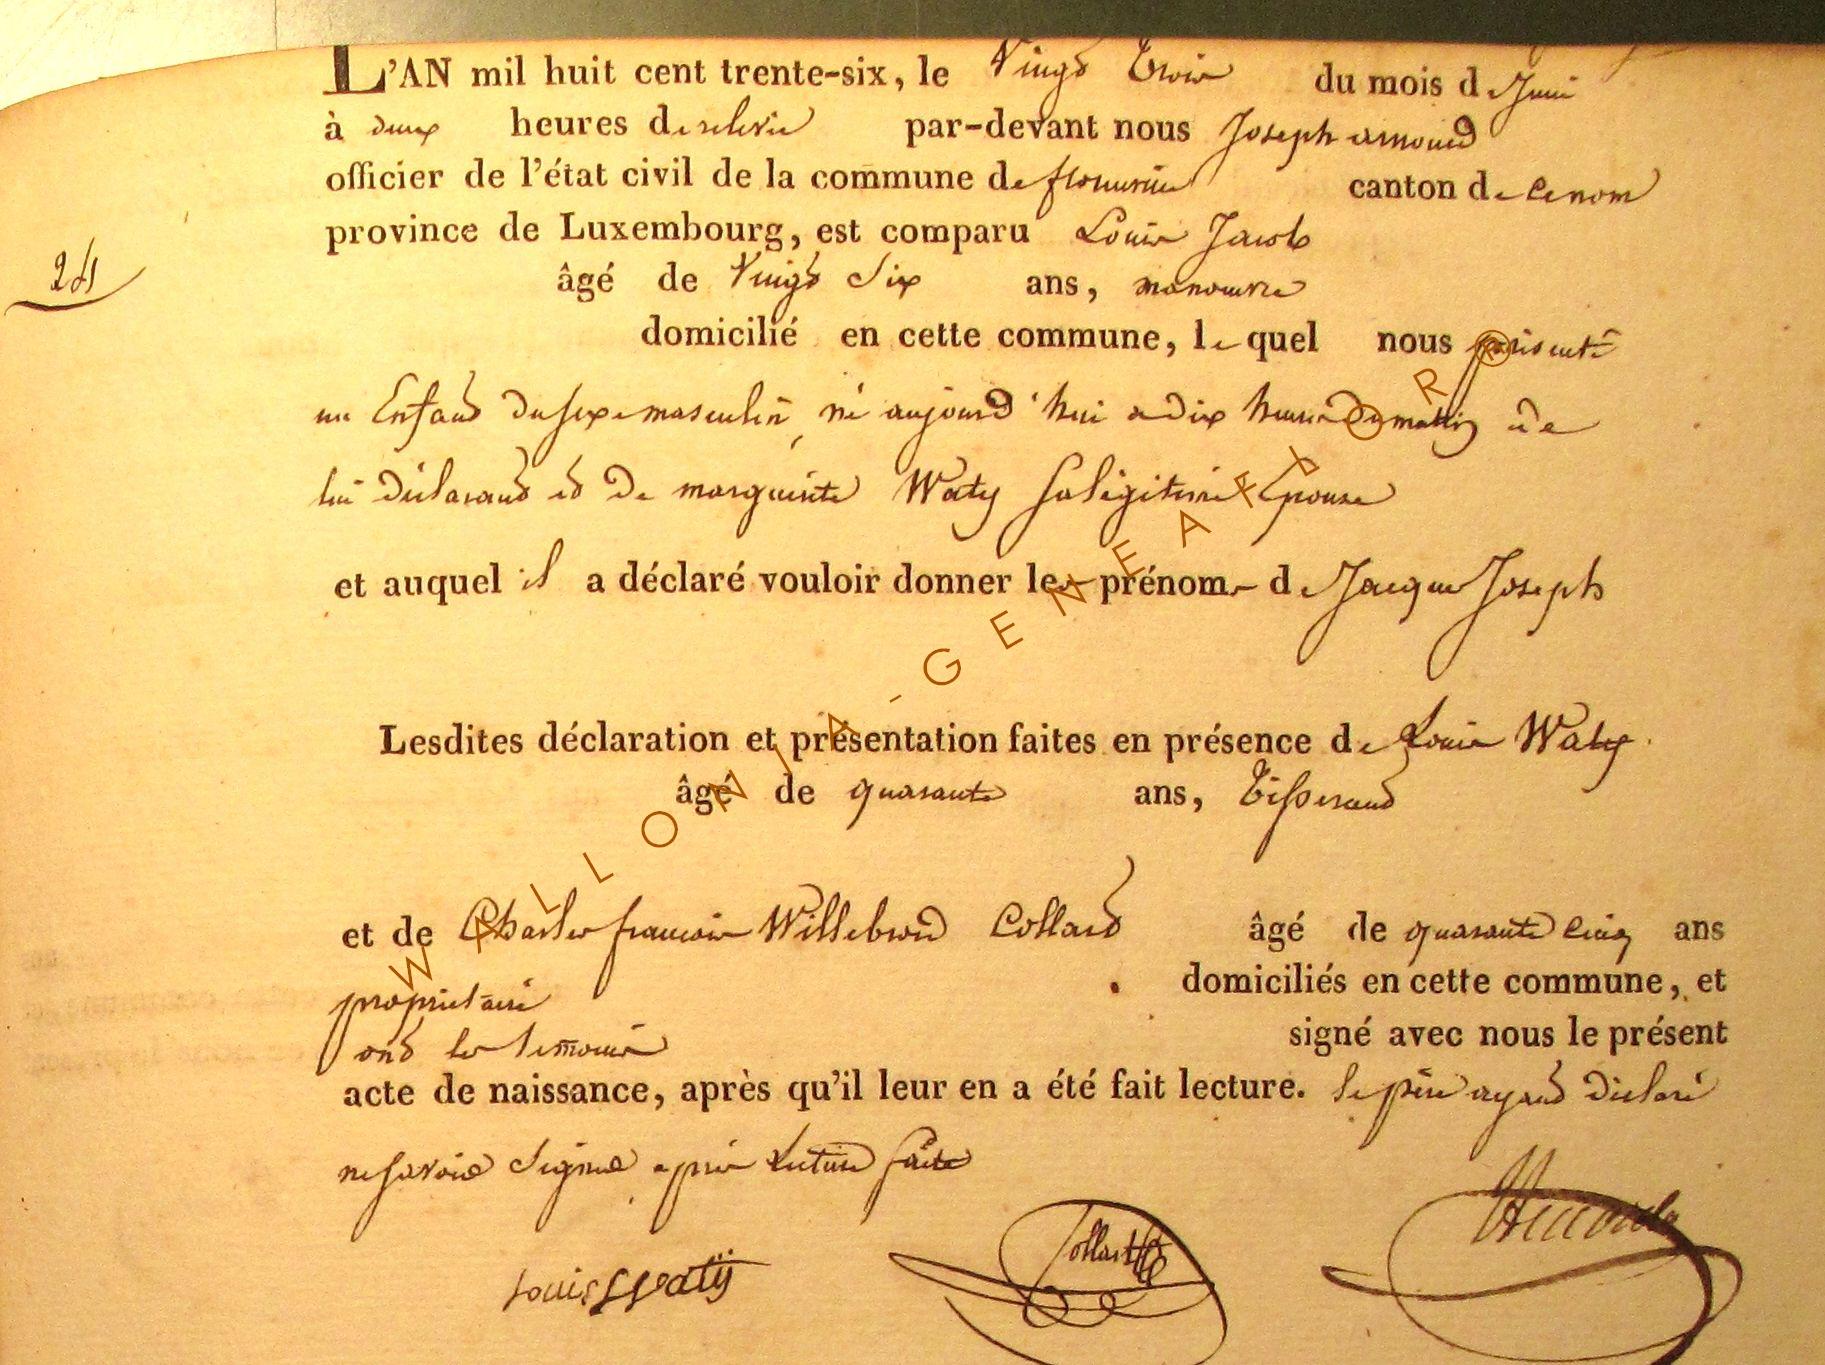 L'AN mil huit cent trente-six, le Vingt Trois du mois de Juin
à deux heures de relevée par-devant nous Joseph arnould
officier de l'état civil de la commune de florenville canton de ce nom
province de Luxembourg, est comparu Louis Jacob
24
âgé de Vingt Six ans, manouvre
domicilié en cette commune, lequel nous présenté
un Enfant du sexe masculin, né aujourd'hui a dix heures du matin de
lui déclarant et de marguerite Waty sa légitime Epouse
et auquel il a déclaré vouloir donner les prénoms de Jacque Joseph
Lesdites déclaration et présentation faites en présence de Louis Waty
âgé de quarante ans, Tisserand
et de Charles francois Willebrord Collard âgé de quarante cinq ans
propriétaire domiciliés en cette commune, et
ont les témoins signé avec nous le présent
acte de naissance, après qu'il leur en a été fait lecture. le père ayant déclaré
ne savoir signer après lecture faite
Louis Waty Collard
WALLONIA-GENEAFLOR®